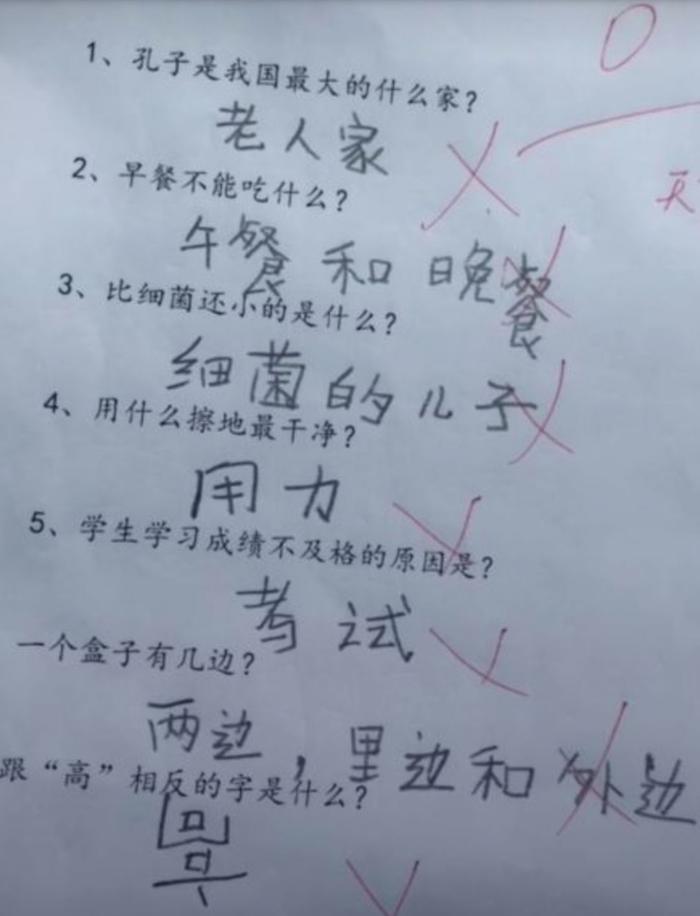 0
1、孔子是我国最大的什么家?
老人家
2、早餐不能吃什么?
午餐和晚餐
3、比细菌还小的是什么?
细菌的儿子
4、用什么擦地最干净?
用力
5、学生学习成绩不及格的原因是?
考试
一个盒子有几边?
两边,里边和外边
跟“高”相反的字是什么?